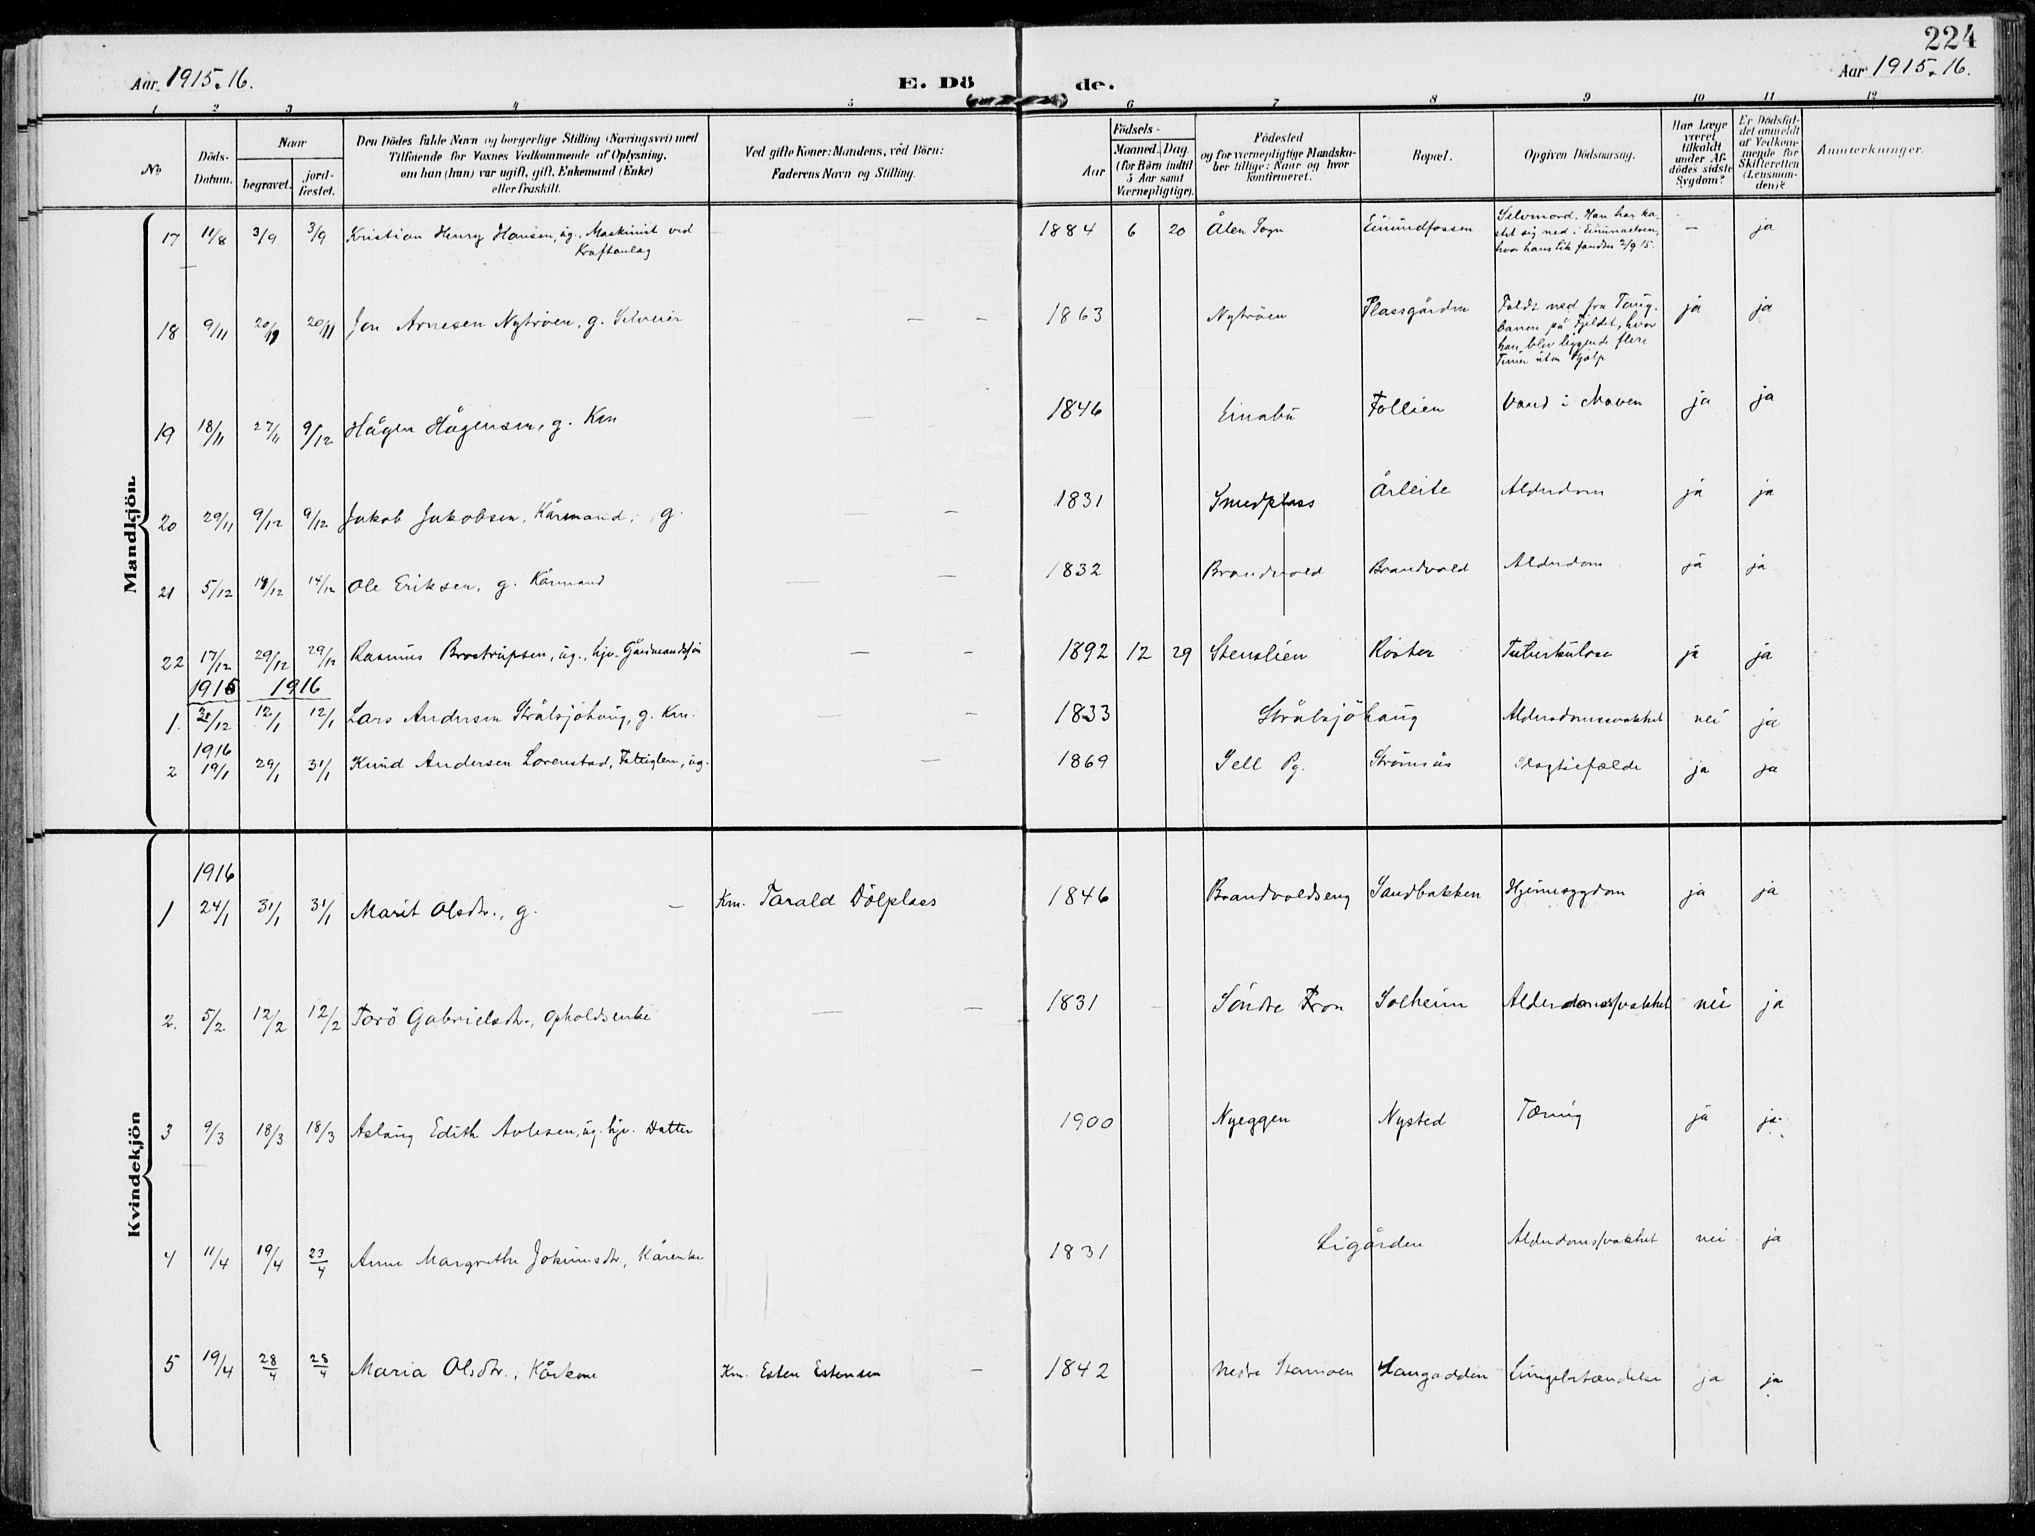 224
Aar 1915-16.
E. Döde.
Aar 1915-16.
1 2 3 4 5 6 7 8 9 10 11 12
No.
Döds-Datum.
Naar
begravet.
jordfæstet.
Den Dödes fulde Navn og borgerlige Stilling (Næringsvei) med
Tilföiende for Voxnes Vedkommende af Oplysning,
om han (hun) var ugift, gift, Enkemand (Enke)
eller fraskilt.
Ved gifte Koner: Mandens, ved Börn:
Faderens Navn og Stilling.
Födsels-
Aar
Maaned. Dag.
(for Börn indtil
5 Aar samt
Værnepligtige).
Födested
og for værnepligtige Mandskaber tillige: Naar og hvor
konfirmeret.
Bopæl.
Opgiven Dödsaarsag.
Har Læge
været
tilkaldt
under Afdödes sidste
Sygdom?
Er Dödsfaldet anmeldt
af Vedkommende for
Skifteretten
(Lensmanden)?
Anmerkninger.
Mandkjön.
17 11/8 3/9 3/9 Kristian Henry Hansen, ug., Maskinist ved
Kraftanlæg
1884 6 20 Ålen Sogn
Einundfossen
Selvmord. Han har kastet sig ned i Einunaelven,
hvor hans Lik fandtes 2/9 15.
— ja
18 9/11 20/11 20/11 Jon Arnesen Nytrøen, g. Selveier — —
1863 Nytrøen Plassgården
Faldt ned fra Taugbanen på Fjeldet, hvor
han blev liggende flere
Timer uten Hjælp
ja ja
19 18/11 27/11 9/12 Hågen Hågensen, g. Km —
1846 Einabu Follien Vand i Maven ja ja
20 29/11 9/12 9/12 Jakob Jakobsen, Kårmand, g. — —
1831 Smedplass Årleite Alderdom ja ja
21 5/12 14/12 14/12 Ole Eriksen, g. Kårmand — —
1832 Brandvold Brandvold Alderdom ja ja
22 17/12 29/12 29/12 Rasmus Brostrupsen, ug., hjv. Gårdmandssøn — —
1892 12 29 Stenslien Roster Tuberkulose ja ja
1915 1916
1. 30/12 12/1 12/1 Lars Andersen Strålsjøhaug, g. Km. — —
1833 Strålsjöhaug Alderdomssvakhet nei ja
1916
2 19/1 29/1 31/1 Knud Andersen Lorenstad, Fattiglem, ug. —
1869 Sell Pg. Strømsås Slagtilfælde ja ja
Kvindekjön
1916
1 24/1 31/1 31/1 Marit Olsdtr., g. — Km. Tarald Dölplass
1846 Brandvoldseng Sandbakken Hjernesygdom ja ja
2. 5/2 12/2 12/2 Torö Gabrielsdtr., Opholdsenke — —
1831 Söndre Fron Solheim Alderdomssvakhet nei ja
3 9/3 18/3 18/3 Aslaug Edith Avlesen, ug. hjv. Datter
1900 Nyeggen Nysted Tæring ja ja
4 11/4 19/4 23/4 Anne Margrethe Jokumsdtr., Kårenke
1831 Ligården Alderdomssvakhet nei ja
5 19/4 28/4 28/4 Maria Olsdtr., Kårkone Km. Esten Estensen —
1842 Nedre Stamoen Langodden Lungebetændelse ja ja